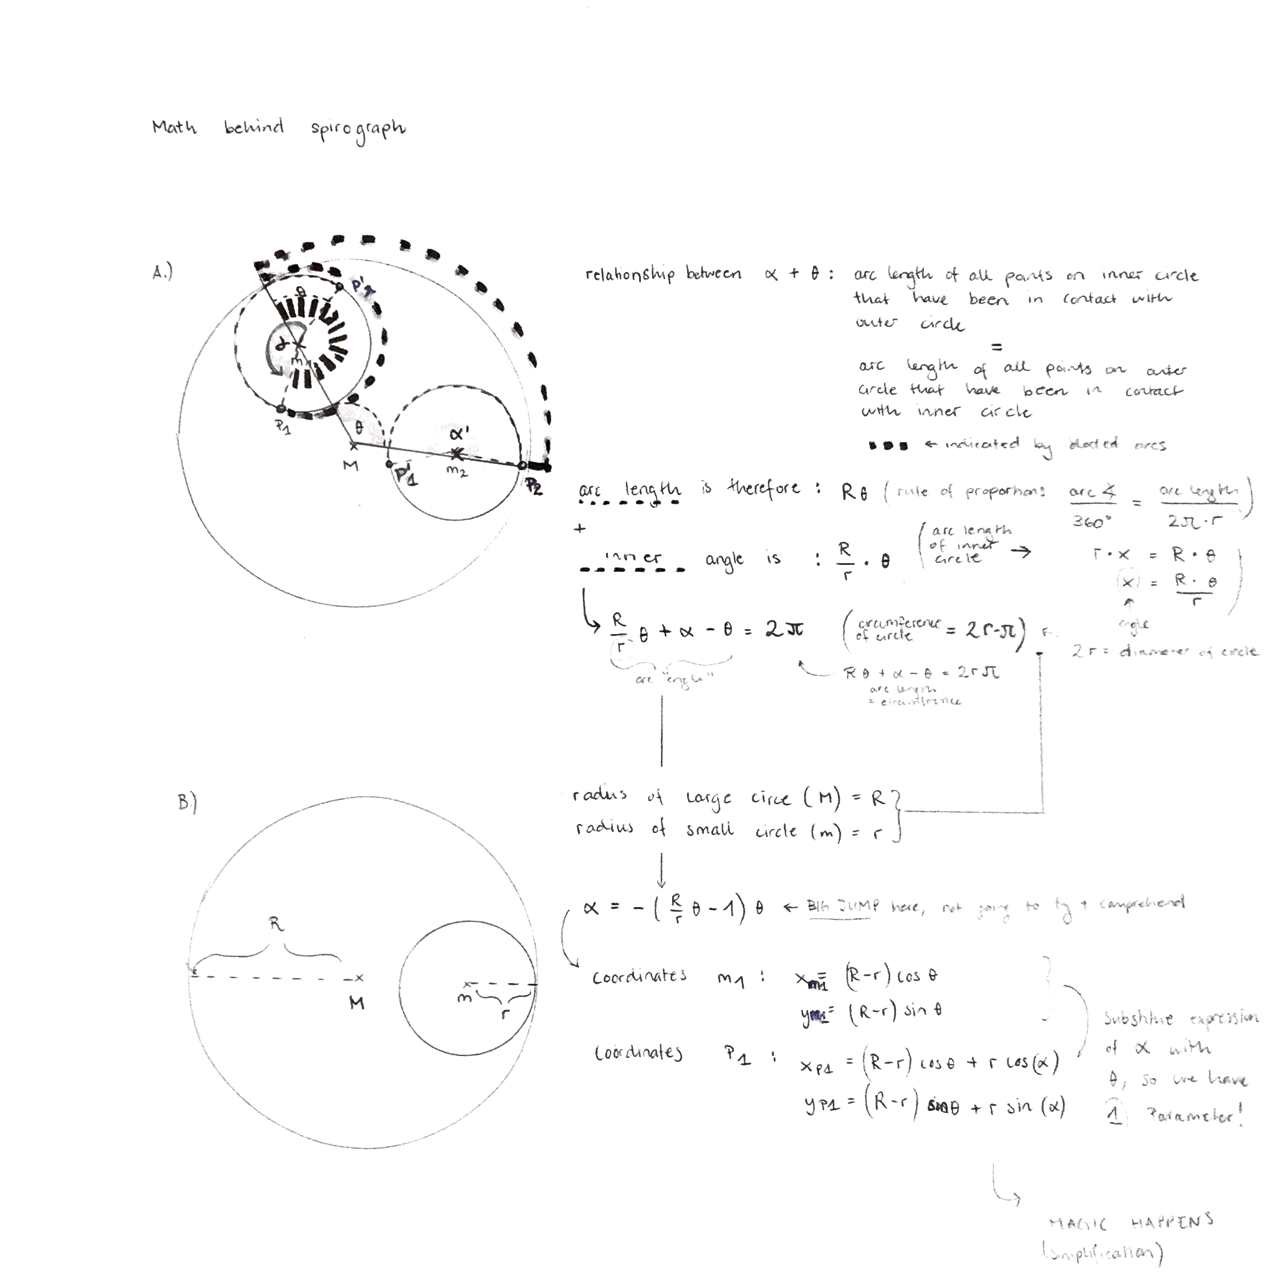 Math behind spirograph
A.)
θ
P'1
α
m1
P1
θ
M
α'
m2
P'1
P2
relationship between α + θ : arc length of all points on inner circle
that have been in contact with
outer circle
=
arc length of all points on outer
circle that have been in contact
with inner circle
← indicated by dotted arcs
arc length is therefore : Rθ (rule of proportion: arc ∡ / 360° = arc length / 2π·r)
+
inner angle is : R/r · θ (arc length of inner circle → r·x = R·θ
x = R·θ / r)
angle
R/r θ + α - θ = 2π (circumference of circle = 2r·π)
2r = diameter of circle
arc "length"
Rθ + α - θ = 2rπ
arc length
= circumference
B.)
R
M
m
r
radius of large circe (M) = R
radius of small circle (m) = r
α = - (R/r θ - 1) θ ← BIG JUMP here, not going to try + comprehend
coordinates m1 : xm1 = (R-r) cos θ
ym1 = (R-r) sin θ
coordinates P1 : xP1 = (R-r) cos θ + r cos(α)
yP1 = (R-r) sinθ + r sin (α)
substitute expression
of α with
θ, so we have
1 Parameter!
MAGIC HAPPENS
(simplification)